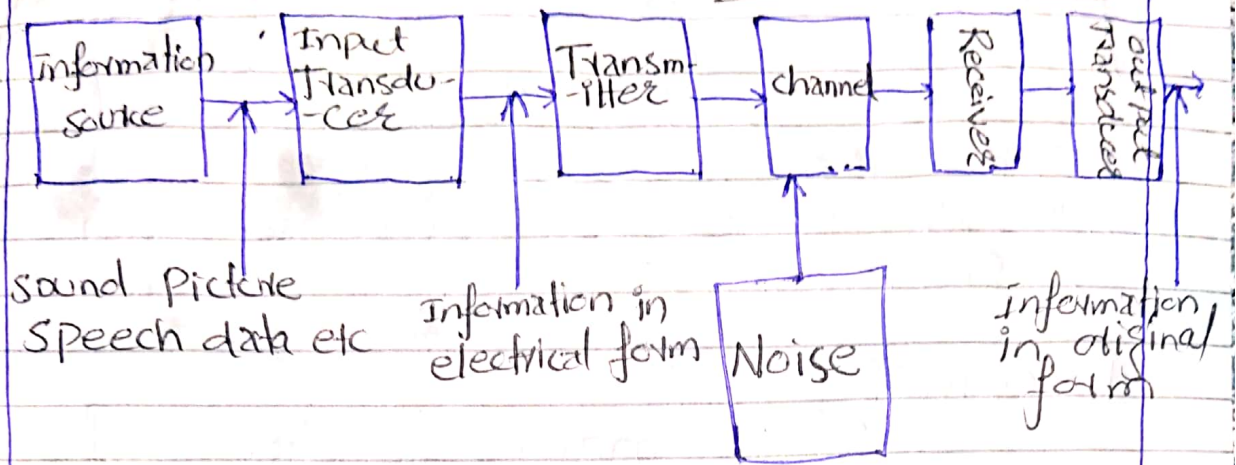 information
source
Input
Transdu-
-cer
Transm-
-itter
channel
Receiver
output
Transducer
sound picture
speech data etc
Information in
electrical form
Noise
information
in original
form